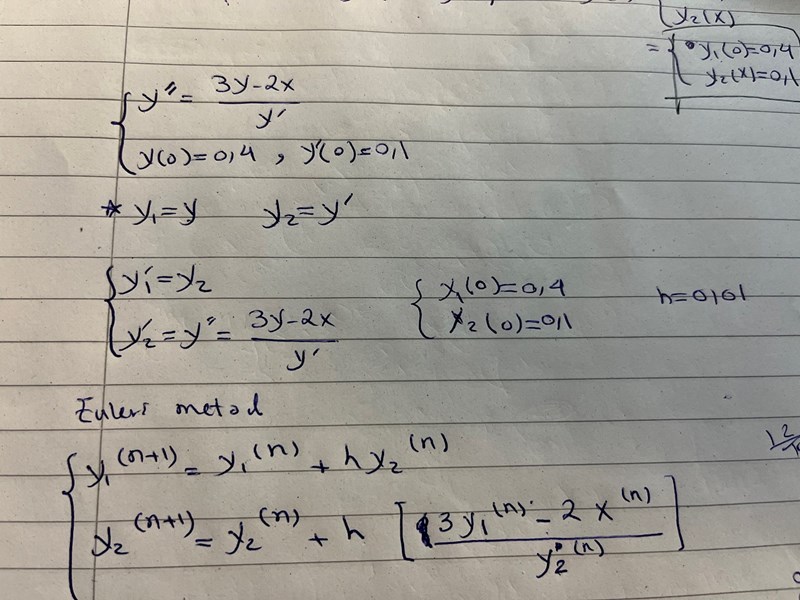 y₂(x)
= { y₁(0)=0,4
y₂(x)=0,1
y″ = (3y-2x)/y′
y(0)=0,4 , y′(0)=0,1
* y₁=y y₂=y′
y₁′=y₂ y₁(0)=0,4 h=0,01
y₂′=y″= (3y-2x)/y′ y₂(0)=0,1
Eulers metod
y₁⁽ⁿ⁺¹⁾ = y₁⁽ⁿ⁾ + hy₂⁽ⁿ⁾
y₂⁽ⁿ⁺¹⁾ = y₂⁽ⁿ⁾ + h [(3y₁⁽ⁿ⁾ - 2x⁽ⁿ⁾)/y₂⁽ⁿ⁾]